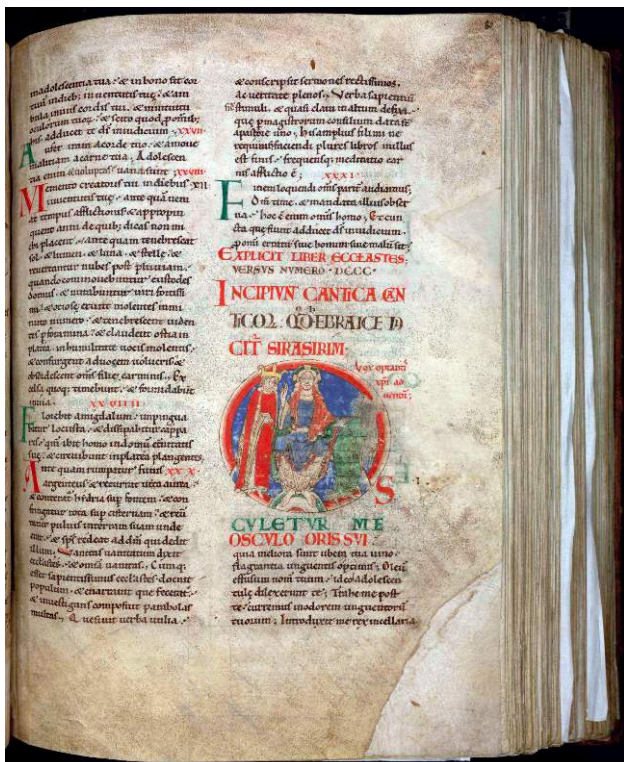 in adolescentia tua . & in bono sit cor
tuum in dieb; iuventutis tuę . & am
bula in viis cordis tui . & in intuitu
oculorum tuoꝝ . & scito quod ꝓ omīb;
his adducet te d̄s in iudicium . XXVII
Aufer iram a corde tuo . & amove
malitiam a carne tua . Adolescen
tia enim & voluptas vana sunt ; XXVIII
Memento creatoris tui in dieb; XII
iuventutis tuę . ante quā veni
at tempus afflictionis & appropin
quent anni de quib; dicas non mi
chi placent . ante quam tenebrescat
sol . & lumen . & luna . & stellę . &
revertantur nubes post pluviam .
quando commovebuntur custodes
domus . & nutabuntur viri fortissi
mi . & ociosę erunt molentes in mi
nuto numero . & tenebrescent viden
tes ꝑ foramina . & claudent ostia in
platea . in humilitate vocis molentis .
& consurgent ad vocem volucris . &
obsurdescent om̄s filię carminis . Ex
celsa quoq; timebunt . & formidabūt
in via . XXVIIII
Florebit amigdalum . inpingua
bitur locusta . & dissipabitur cappa
ris . qm̄ ibit homo in domū ęternitatis
suę . & circuibunt in platea plangentes .
Ante quam rumpatur funis XXX
argenteus . & recurrat vitta aurea .
& conterat̄ hydria sup fontem . & con
fringatur rota sup cisternam . & rever
tatur pulvis in terram suam unde
erat . & sp̄s redeat ad dm̄ qui dedit
illum ; Vanitas vanitatum dixit
ecclesiastes . & omnia vanitas . Cumq;
esset sapientissimus ecclesiastes docuit
populum . & enarravit que fecerat .
& investigans composuit parabolas
multas . Quesivit verba utilia .
& conscripsit sermones rectissimos .
ac veritate plenos . Verba sapientiū
sic̄ stimuli . & quasi clavi in altum defixi .
que ꝑ magistrorum consilium data sx̄
a pastore uno . his amplius fili mi ne
requiras . faciendi plures libros nullus
est finis . frequensq; meditatio car
nis afflictio ē ; XXXI
Finem loquendi om̄s parit̄ audiamus ;
Dm̄ time . & mandata illius obser
va . hoc ē enim om̄is homo ; Et cun
cta que fiunt adducet d̄s in iudicium .
ꝓ omni erratu sive bonum sive malū sit ;
EXPLICIT LIBER ECCL̄ASTES ;
VERSVS NVMERO . DCCC .
INCIPIVN̄ CANTICA CAN
TICOꝜ . QD̄ EBRAICE DI
CIT̄ SIRASIRIM ;
Vox optantis
xp̄i ad
ventū ;
OSCVLETVR ME
OSCVLO ORIS SVI .
quia meliora sunt ubera tua vino .
flagrantia unguentis optimis ; Oleū
effusum nom̄ tuum . ideo adolescen
tulę dilexerunt te ; Trahe me post
te . curremus in odorem unguentorū
tuorum ; Introduxit me rex in cellaria